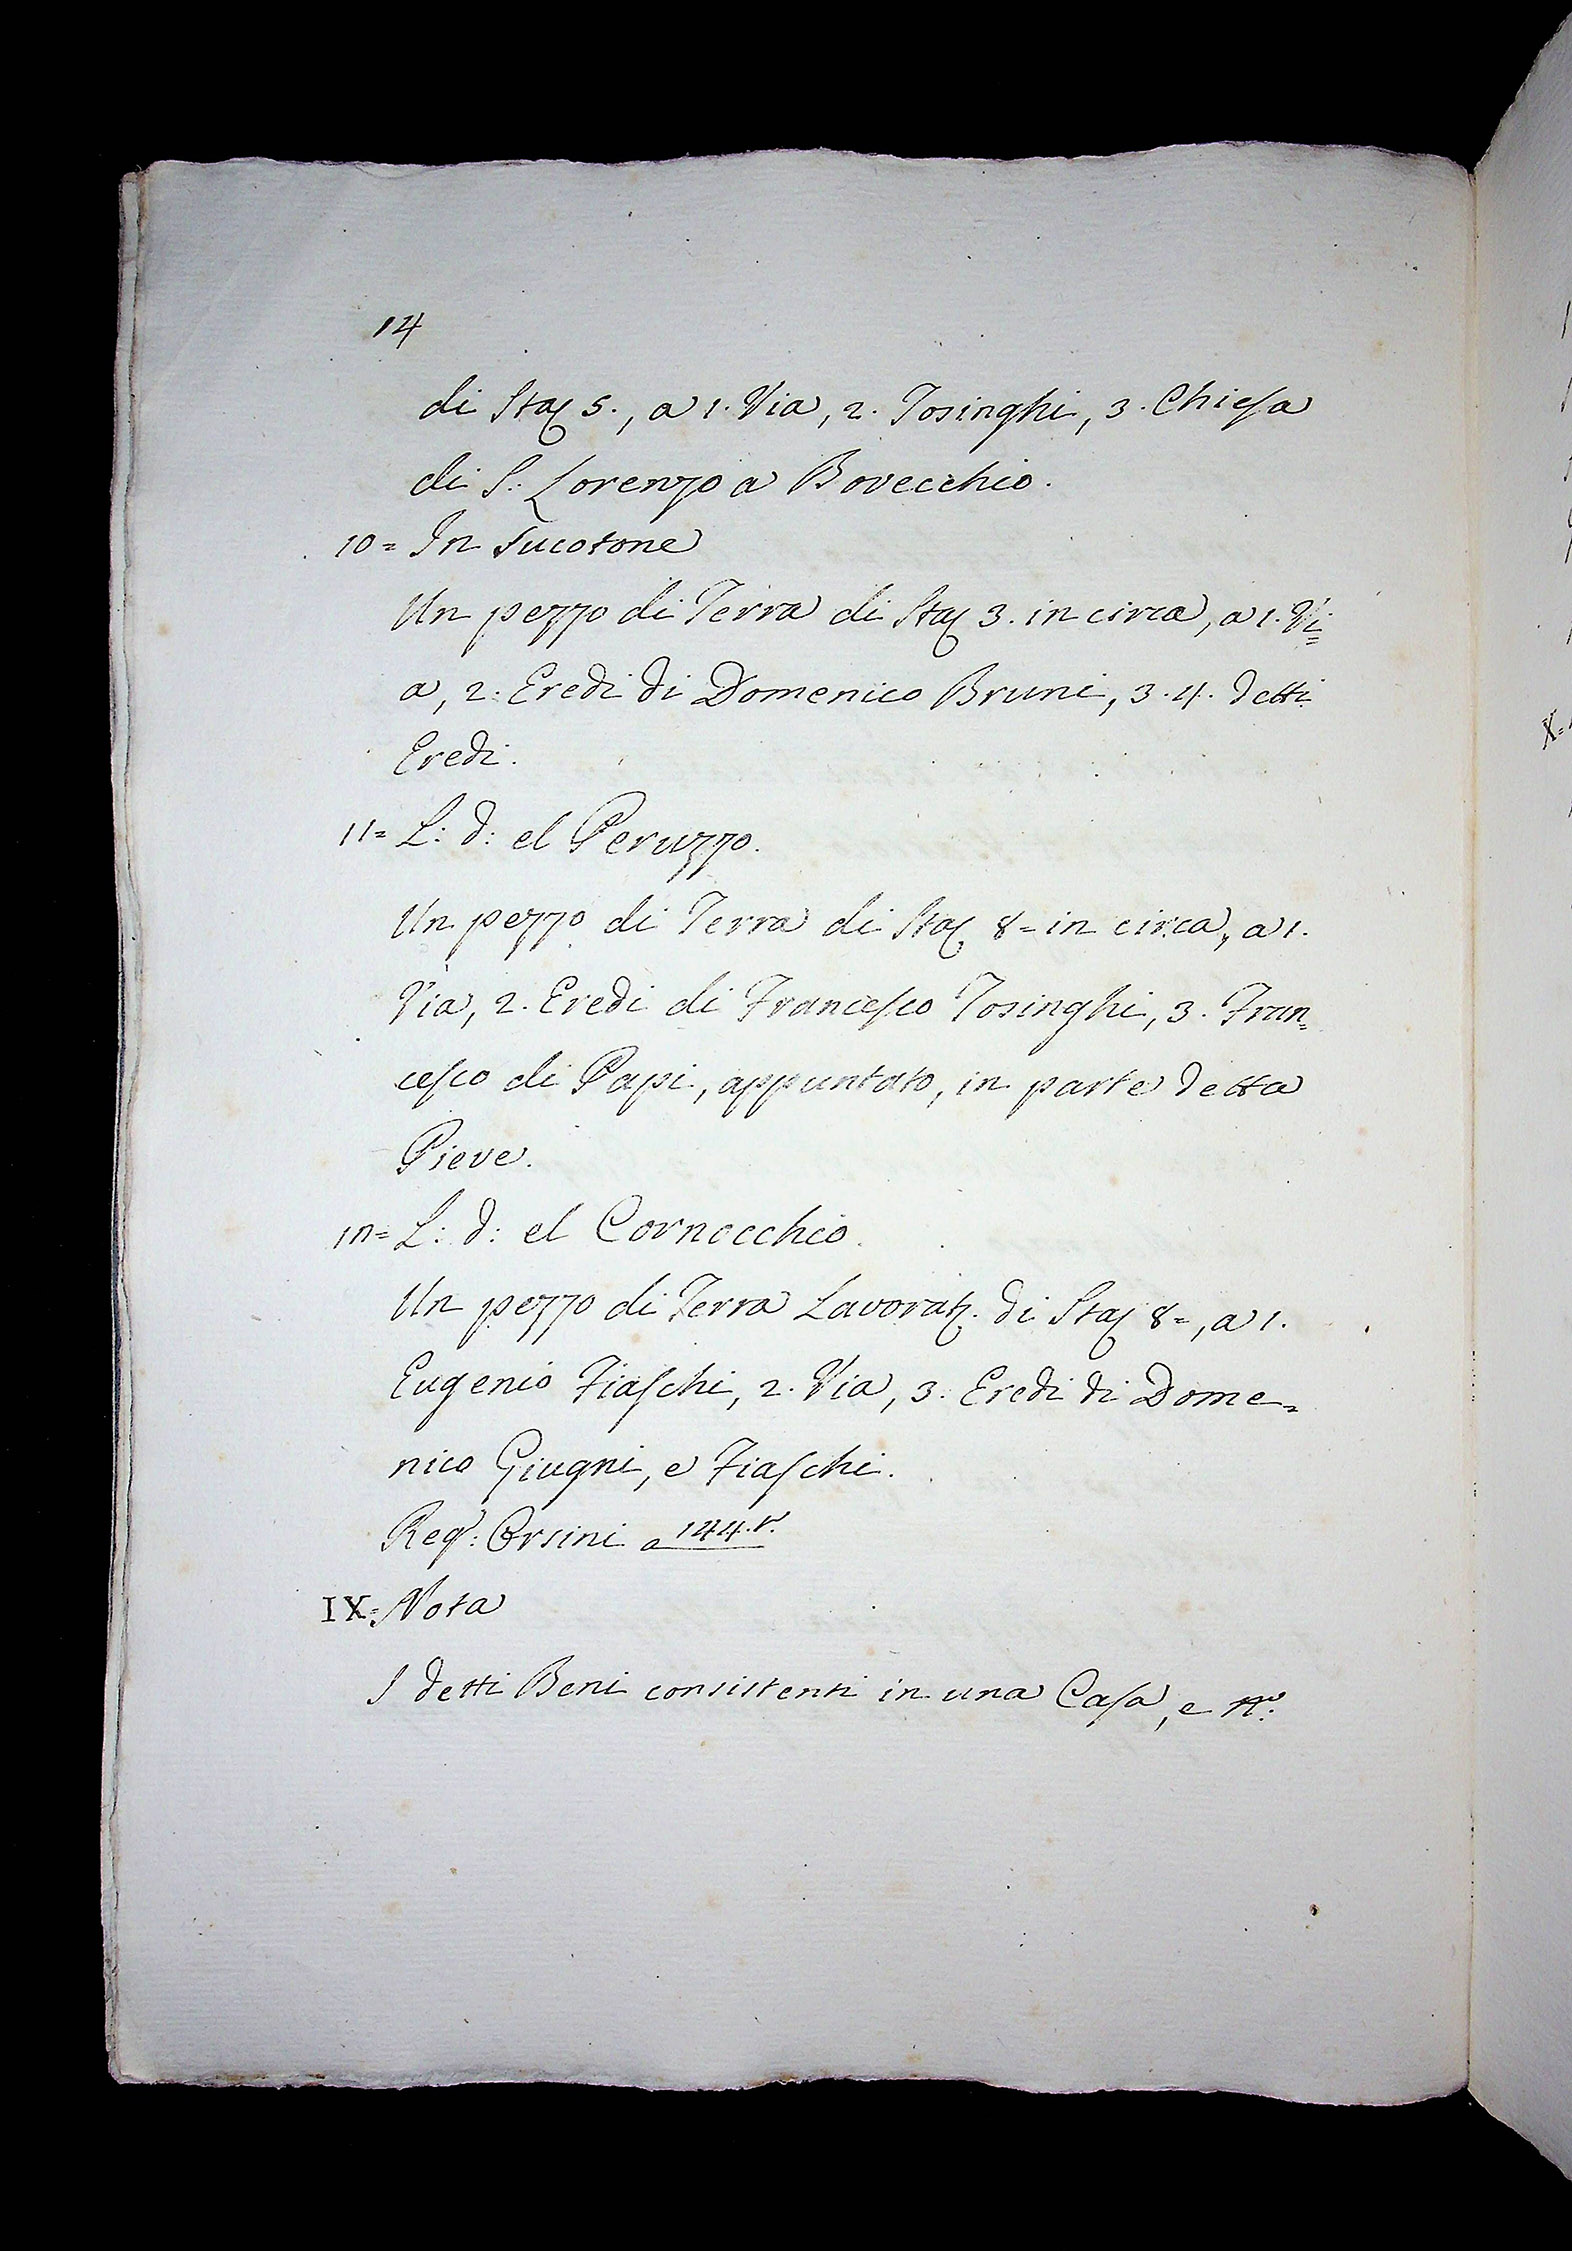 14
di Staj 5., a 1. Via, 2. Tosinghi, 3. Chiesa
di S: Lorenzo a Bovecchio.
10= In Sucotone
Un pezzo di Terra di Staj 3. in circa, a 1. Vi=
a, 2: Eredi di Domenico Bruni, 3. 4. detti
Eredi.
11= L: d: el Peruzzo.
Un pezzo di Terra di Staj 8= in circa, a 1.
Via, 2. Eredi di Francesco Tosinghi, 3. Fran=
cesco di Papi, appuntato, in parte detta
Pieve.
12= L: d: el Cornocchio.
Un pezzo di Terra Lavorat. di Staj 8=, a 1.
Eugenio Fiaschi, 2. Via, 3. Eredi di Dome=
nico Giugni, e Fiaschi.
Reg: Orsini a 144.r.
IX= Nota
I detti Beni consistenti in una Casa, e
X=